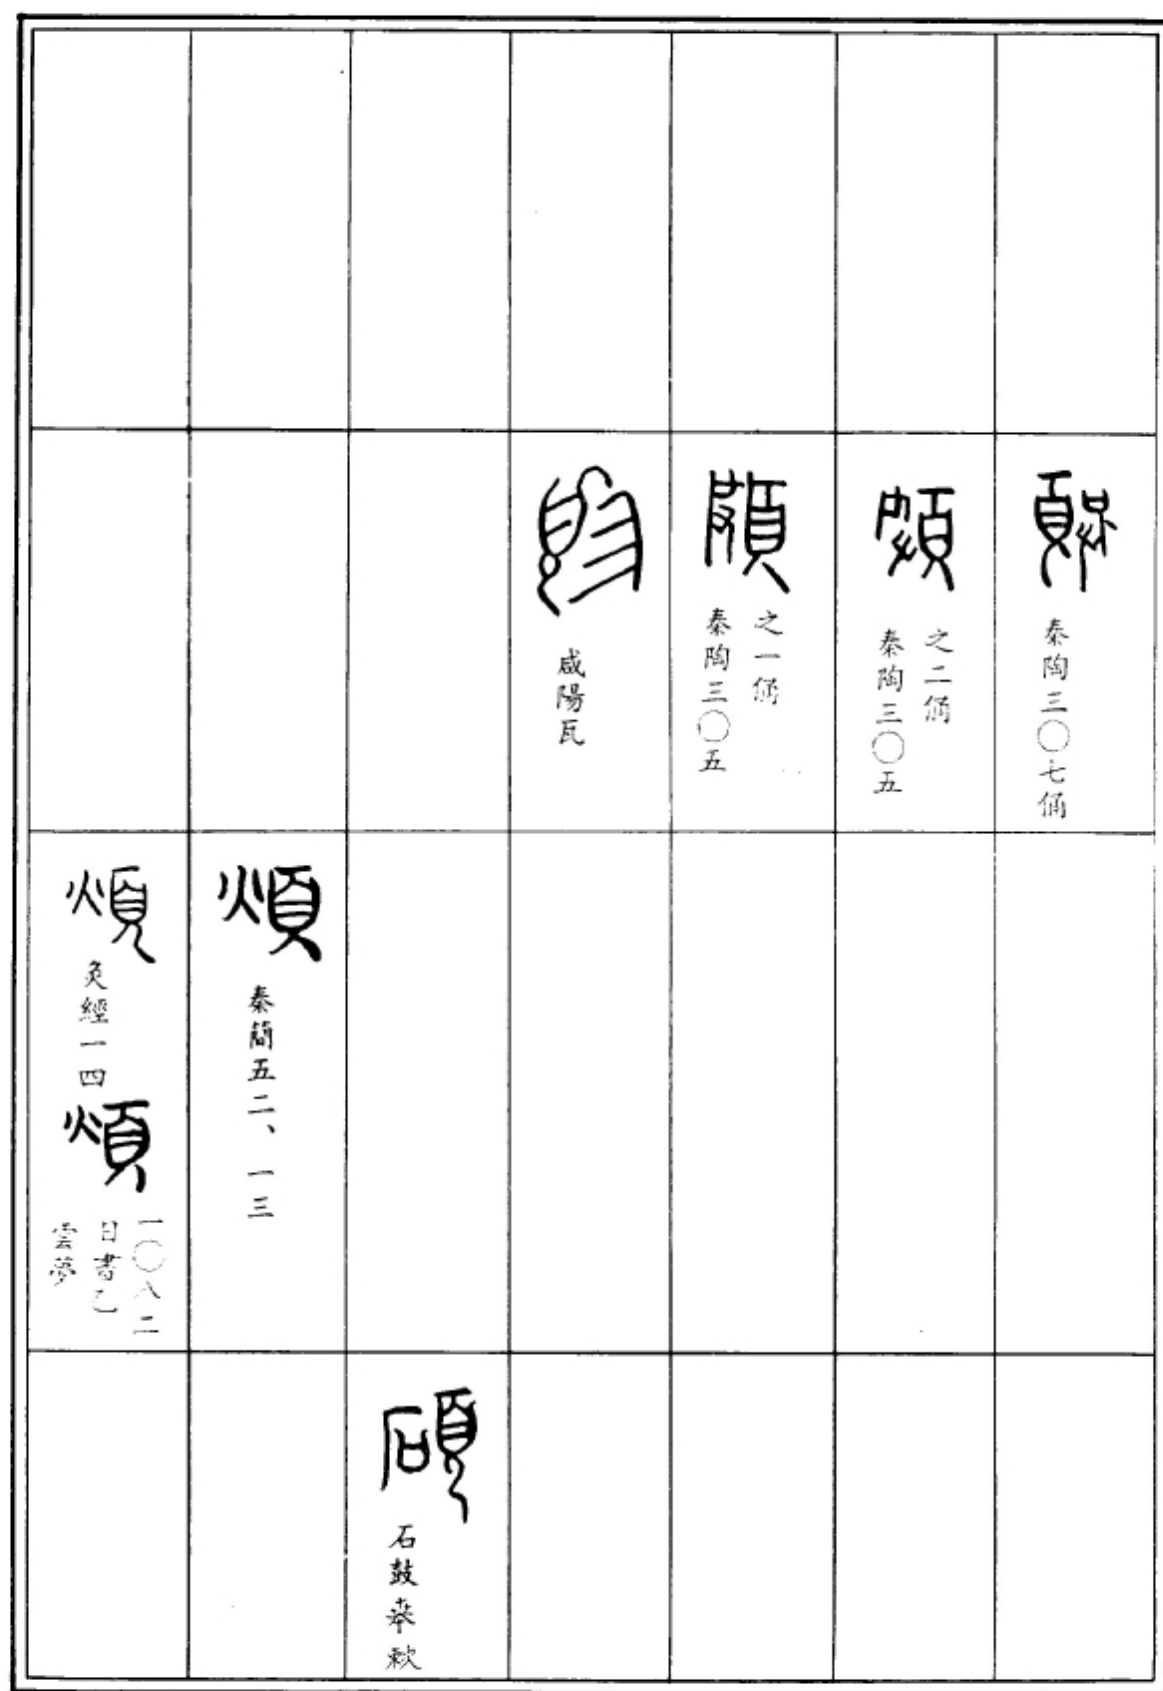 秦陶三〇七俑
秦陶三〇五
之二俑
頗
秦陶三〇五
之一俑
咸陽瓦
煩
秦簡五二、一三
煩
灸經一四
煩
雲夢
日書乙
一〇八二
碩
石鼓